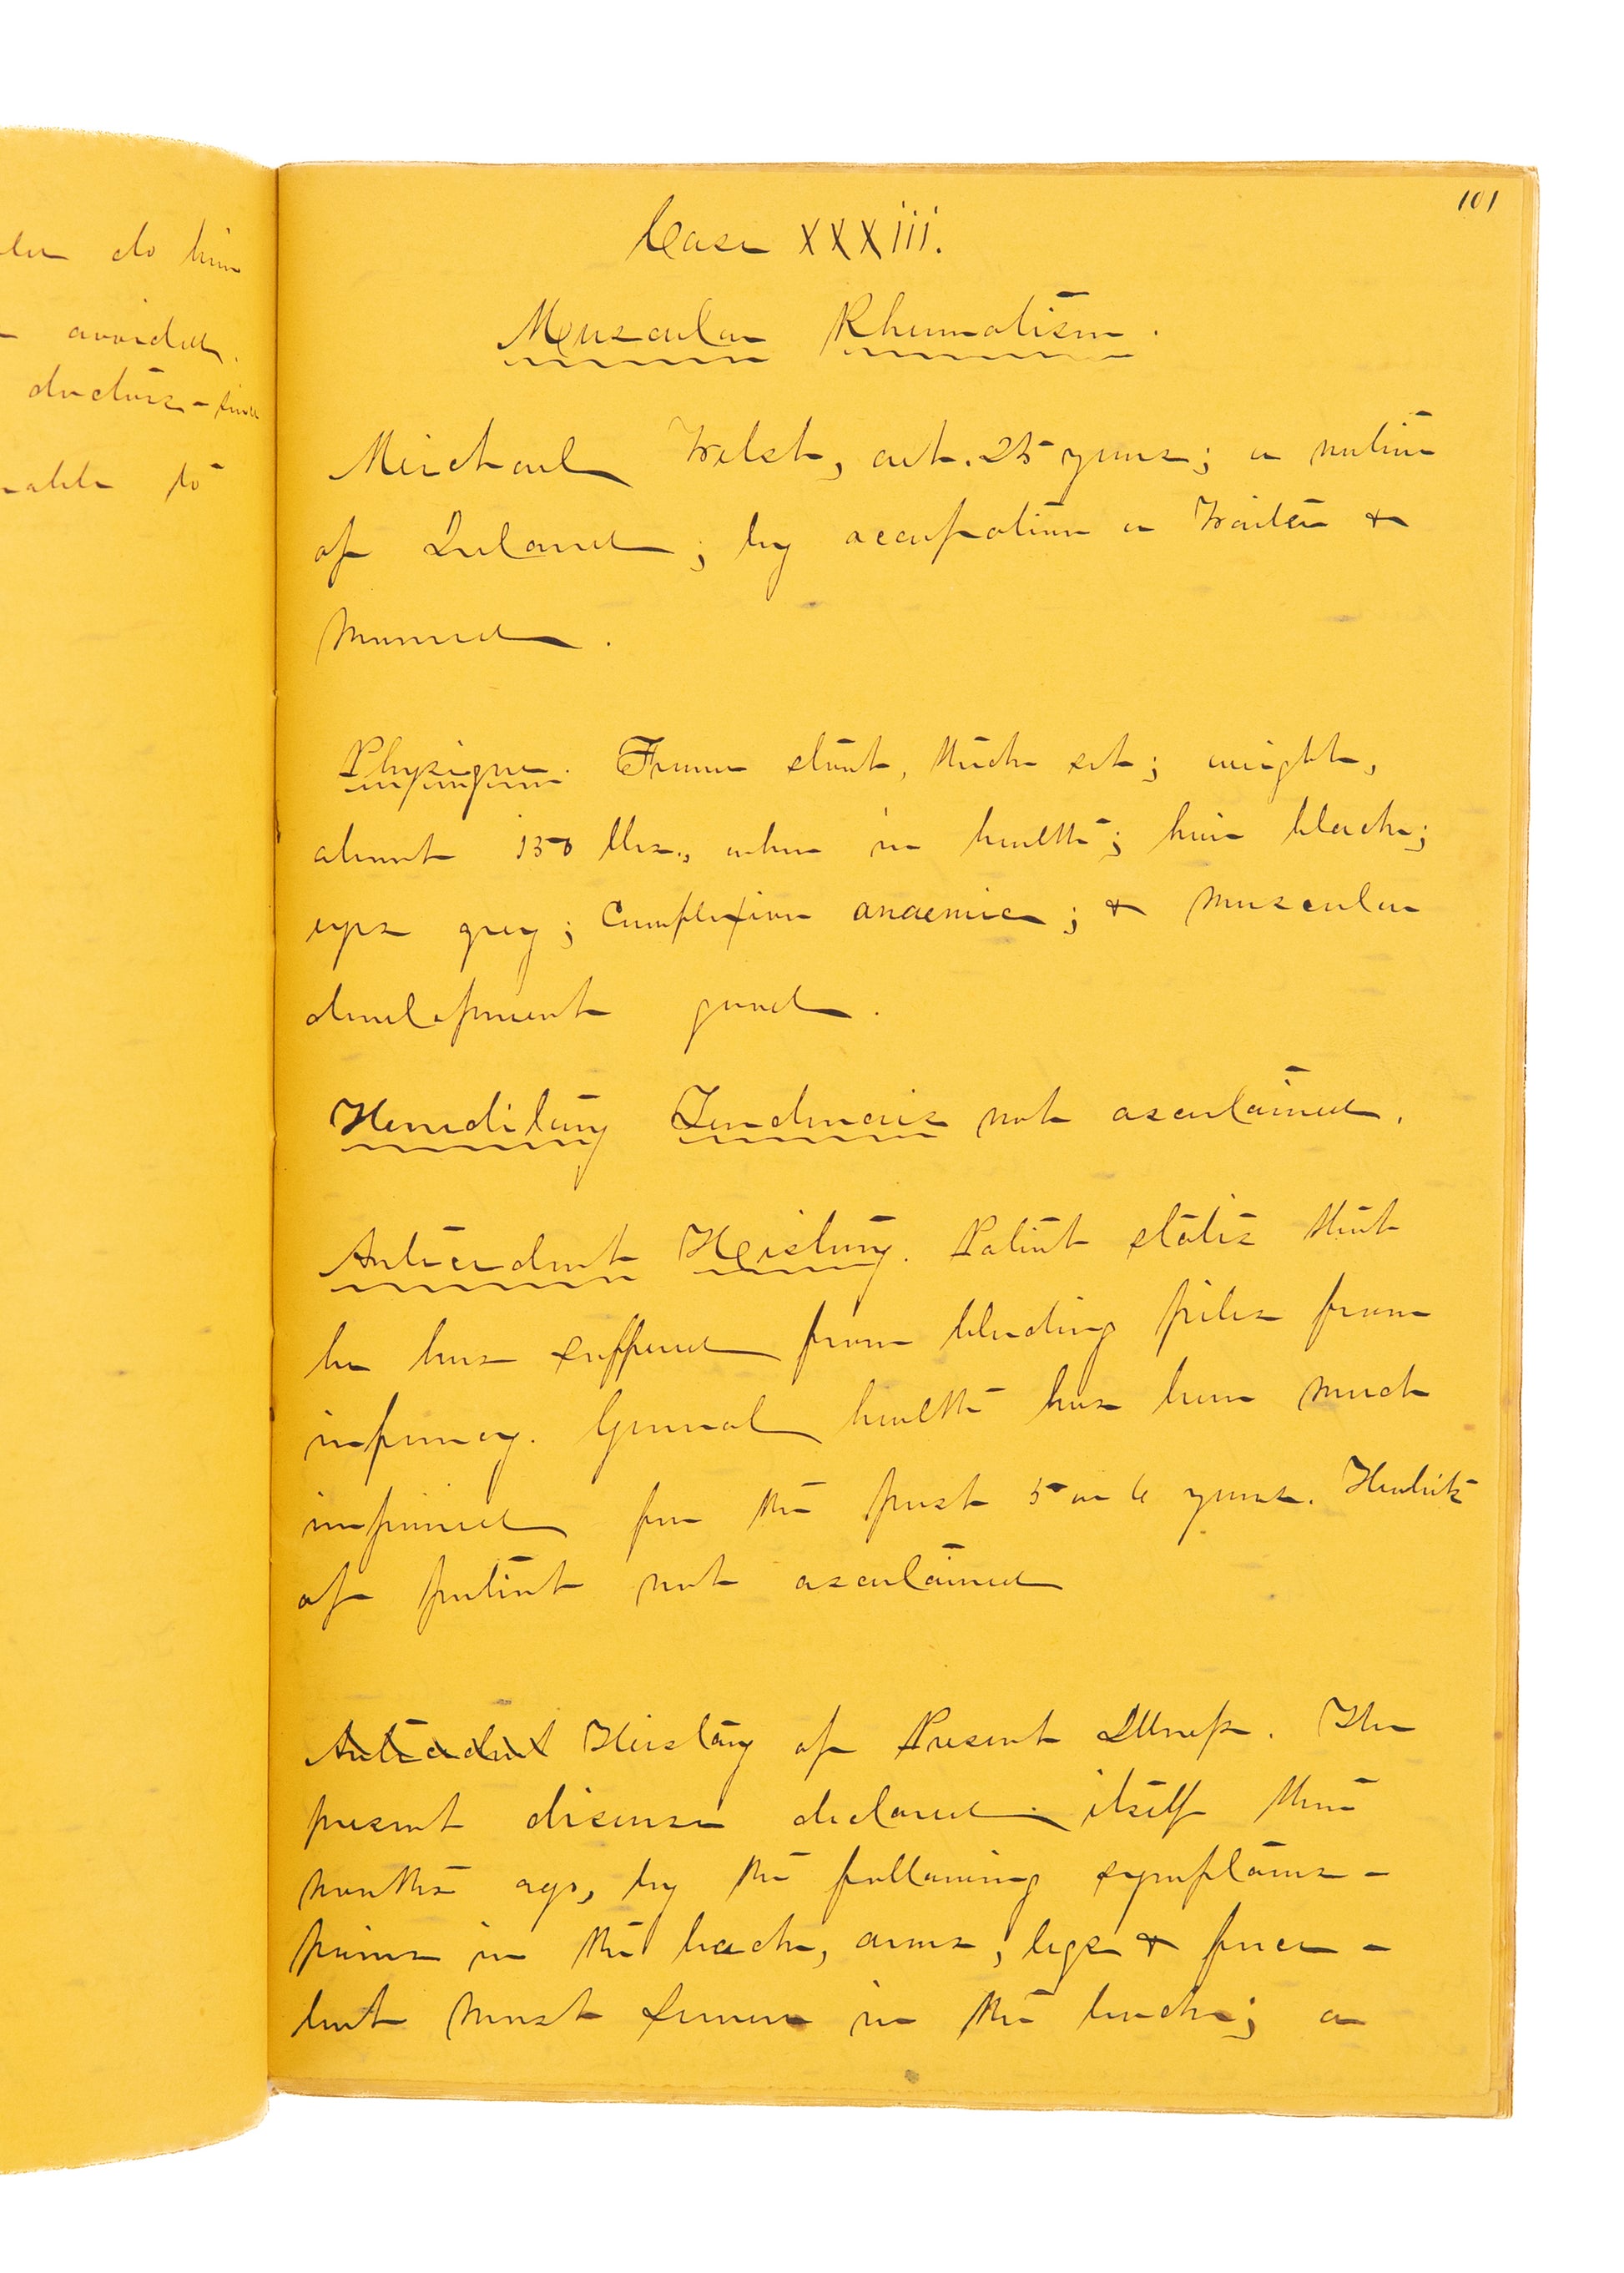 do him
avoided.
doctors - since
able to
101
Case XXXiii.
Muscular Rheumatism.
Michael Welsh, aet. 25 years; a native
of Ireland; by occupation a Waiter &
married.
Physique. Frame stout, thick set; weight,
about 150 lbs., when in health; hair black;
eyes grey; Complexion anaemic; & muscular
development good.
Hereditary Tendencies not ascertained.
Antecedent History. Patient states that
he has suffered from bleeding piles from
infancy. General health has been much
impaired for the past 5 or 6 years. Habits
of patient not ascertained
Antecedent History of Present Illness. The
present disease declared itself three
months ago, by the following symptoms -
pains in the back, arms, legs & face -
but most severe in the back; a